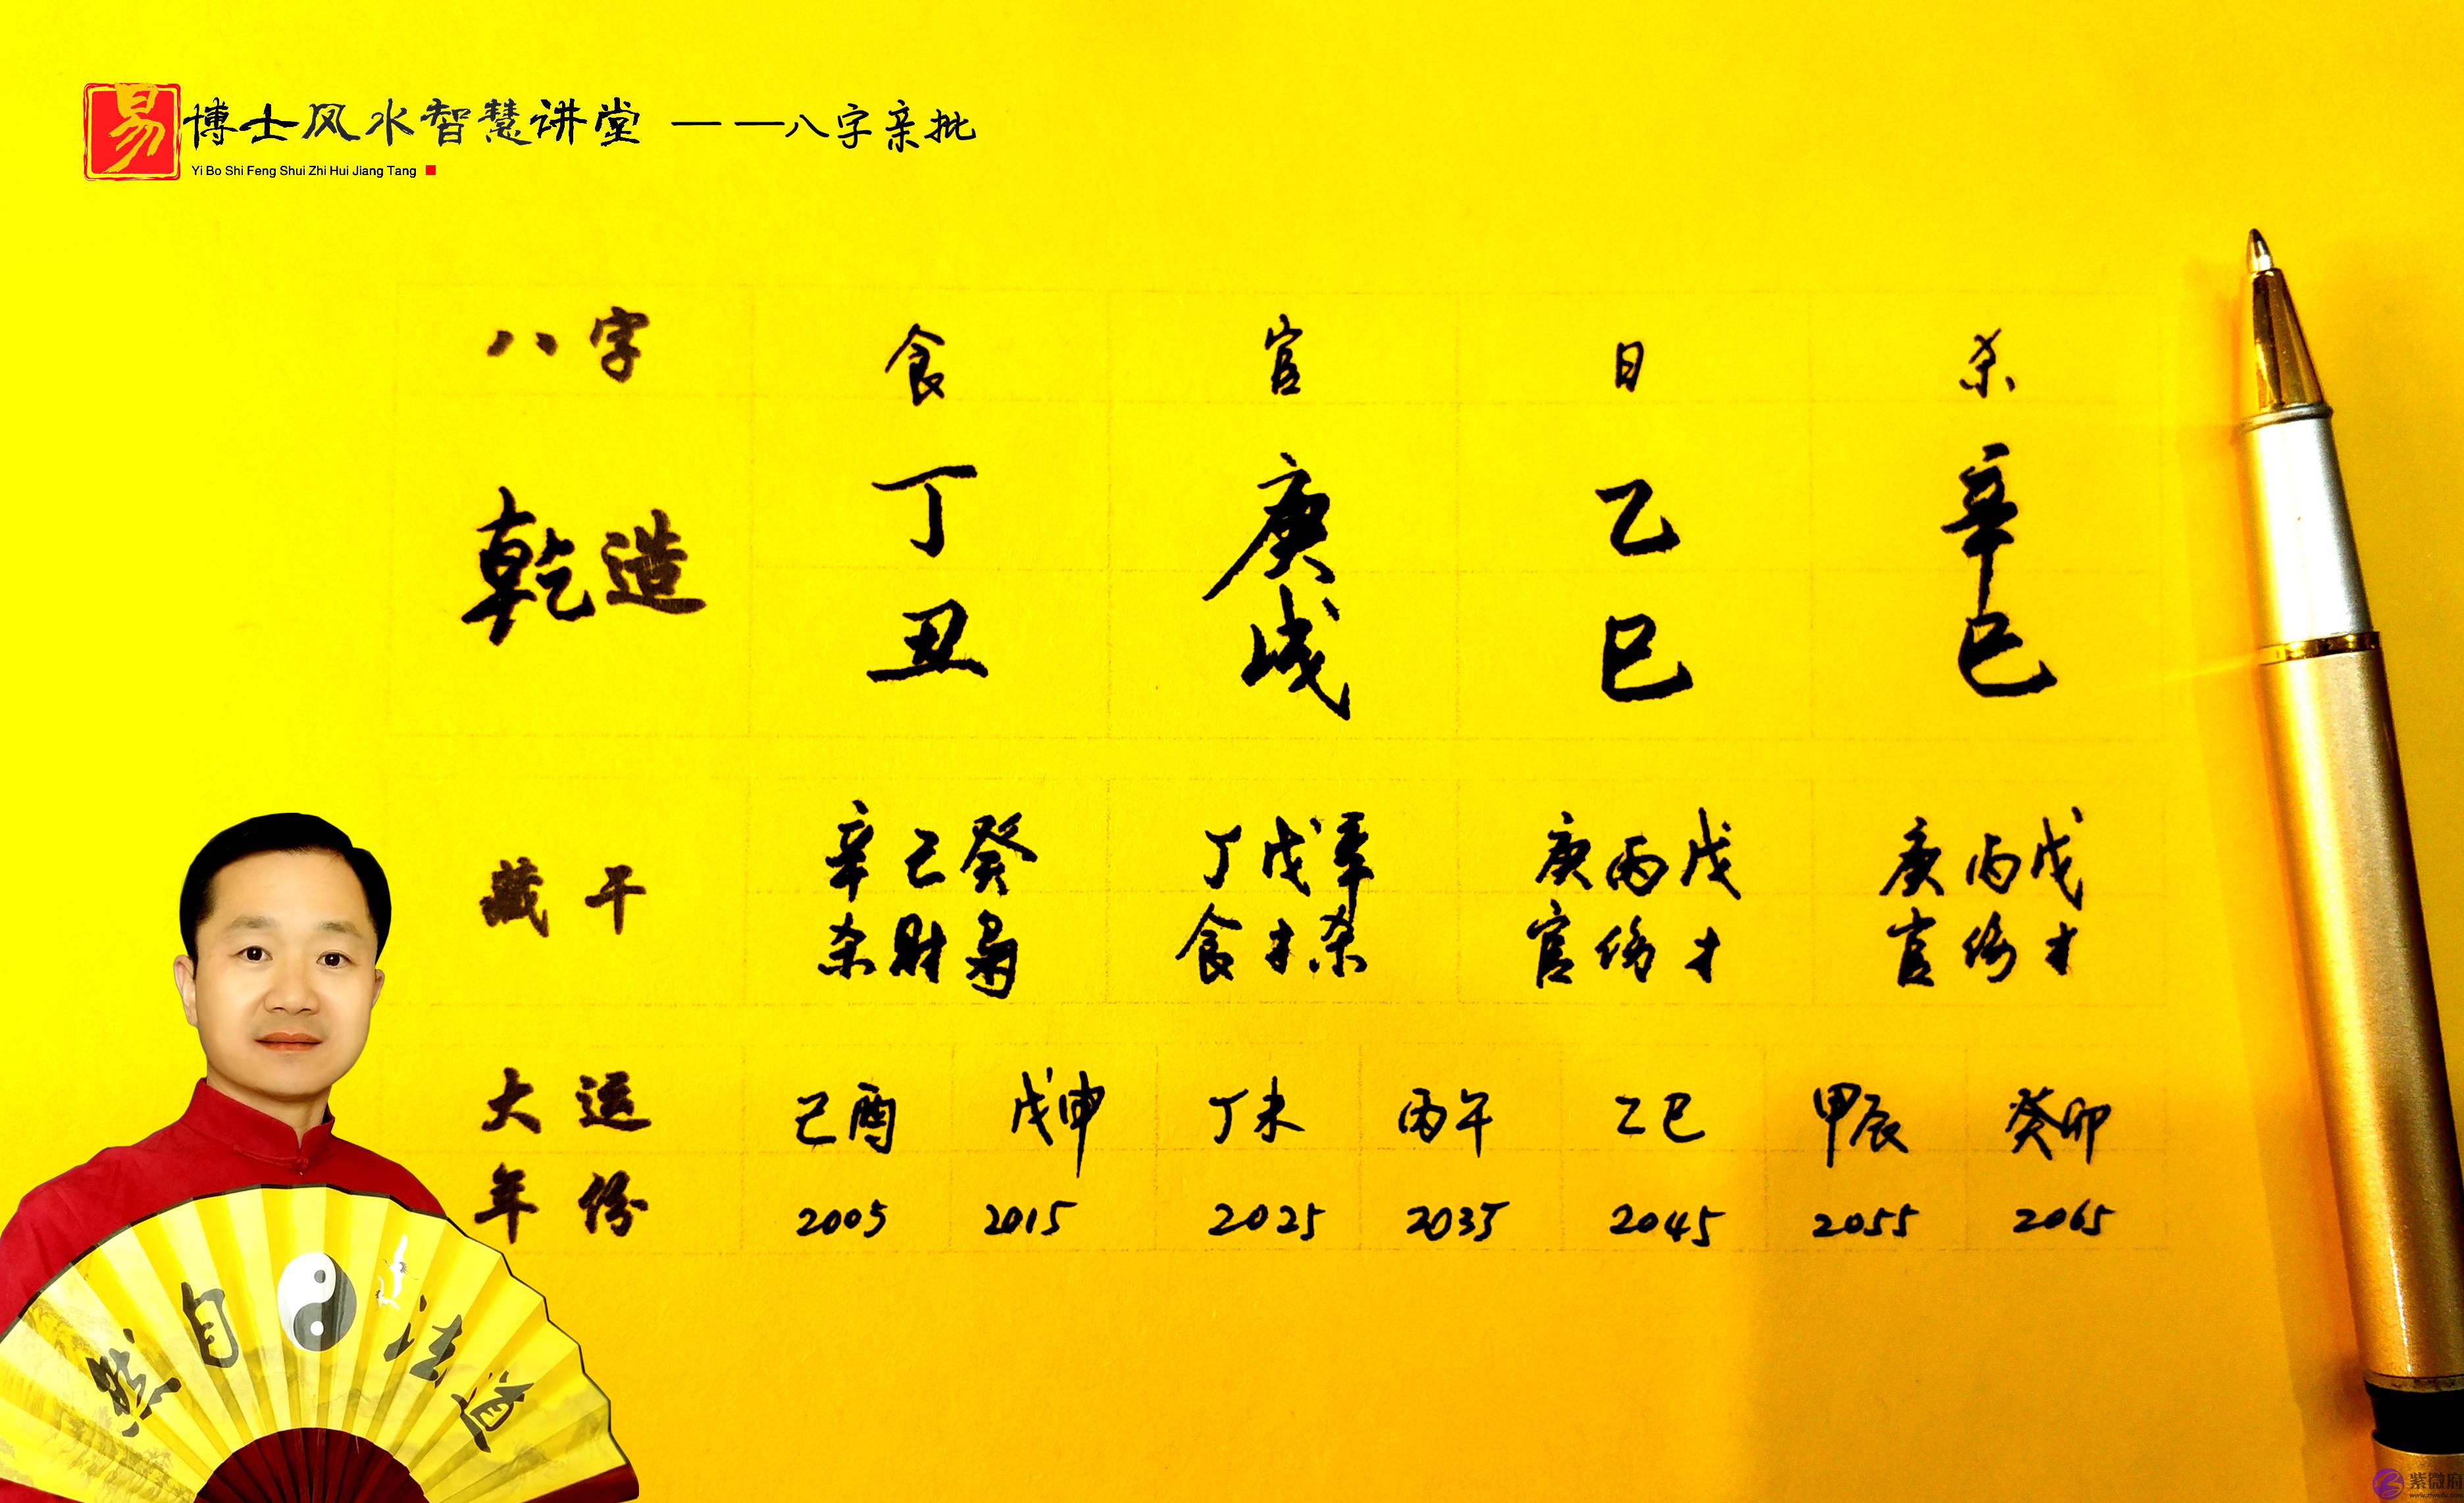 易博士风水智慧讲堂 ——八字亲批
Yi Bo Shi Feng Shui Zhi Hui Jiang Tang
八字 食 官 日 杀
乾造 丁 庚 乙 辛
丑 戌 巳 巳
藏干 辛己癸 丁戊辛 庚丙戊 庚丙戊
杀财枭 食才杀 官伤才 官伤才
大运 己酉 戊申 丁未 丙午 乙巳 甲辰 癸卯
年份 2005 2015 2025 2035 2045 2055 2065
然自法道
紫微府